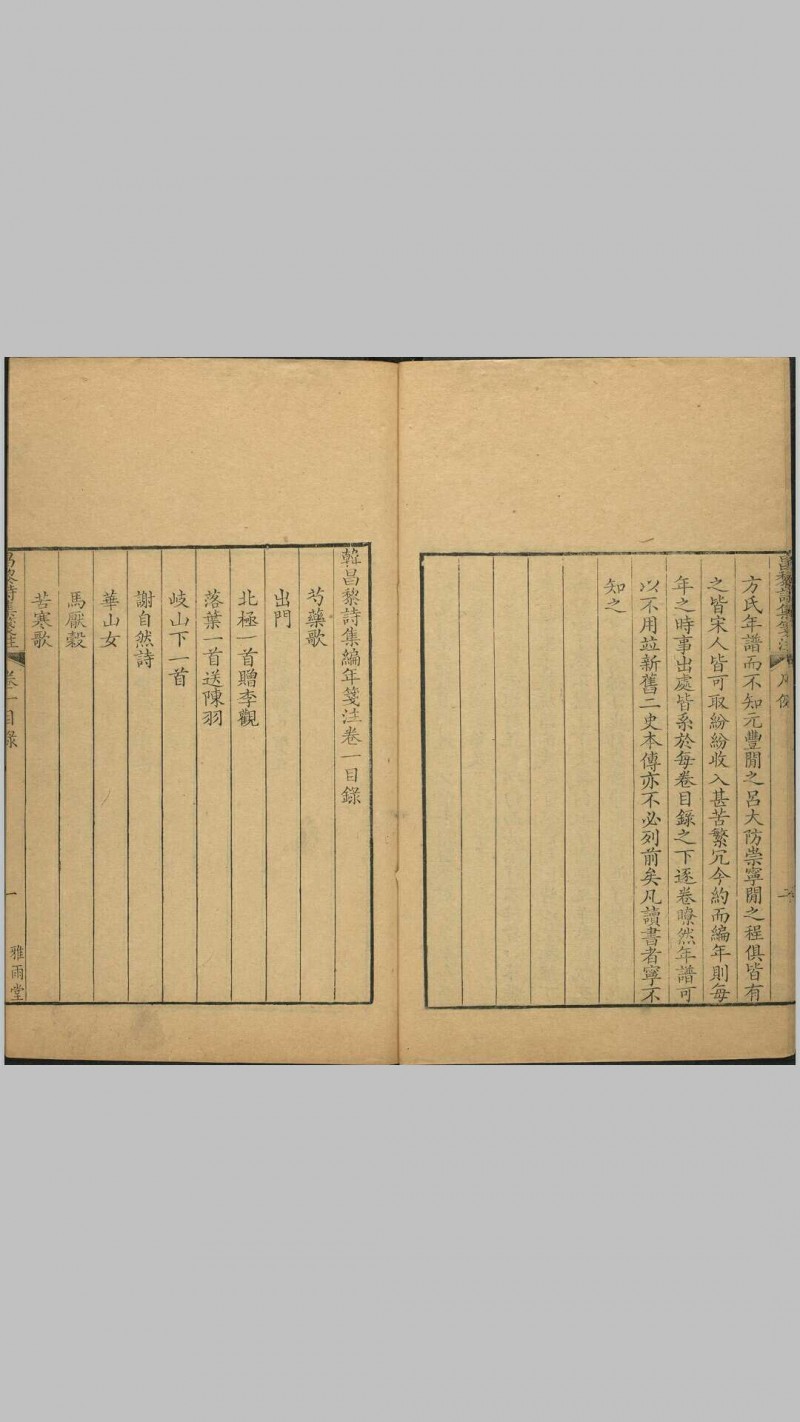 方氏年譜而不知元豐閒之呂大防崇寧閒之程俱皆有
之皆宋人皆可取紛紛收入甚苦繁冗今約而編年則每
年之時事出處皆系於每卷目錄之下逐卷瞭然年譜可
以不用竝新舊二史本傳亦不必列前矣凡讀書者寧不
知之
韓昌黎詩集編年箋注卷一目錄
芍藥歌
出門
北極一首贈李觀
落葉一首送陳羽
岐山下一首
謝自然詩
華山女
馬厭穀
苦寒歌
卷一目錄
一
雅雨堂